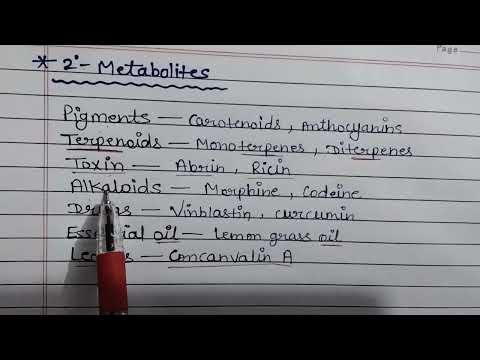 Page
* 2°- Metabolites
Pigments — Carotenoids, Anthocyanins
Terpenoids — Monoterpenes, Diterpenes
Toxin — Abrin, Ricin
Alkaloids — Morphine, Codeine
— Vinblastin, curcumin
oil — Lemon grass oil
— Concanvalin A